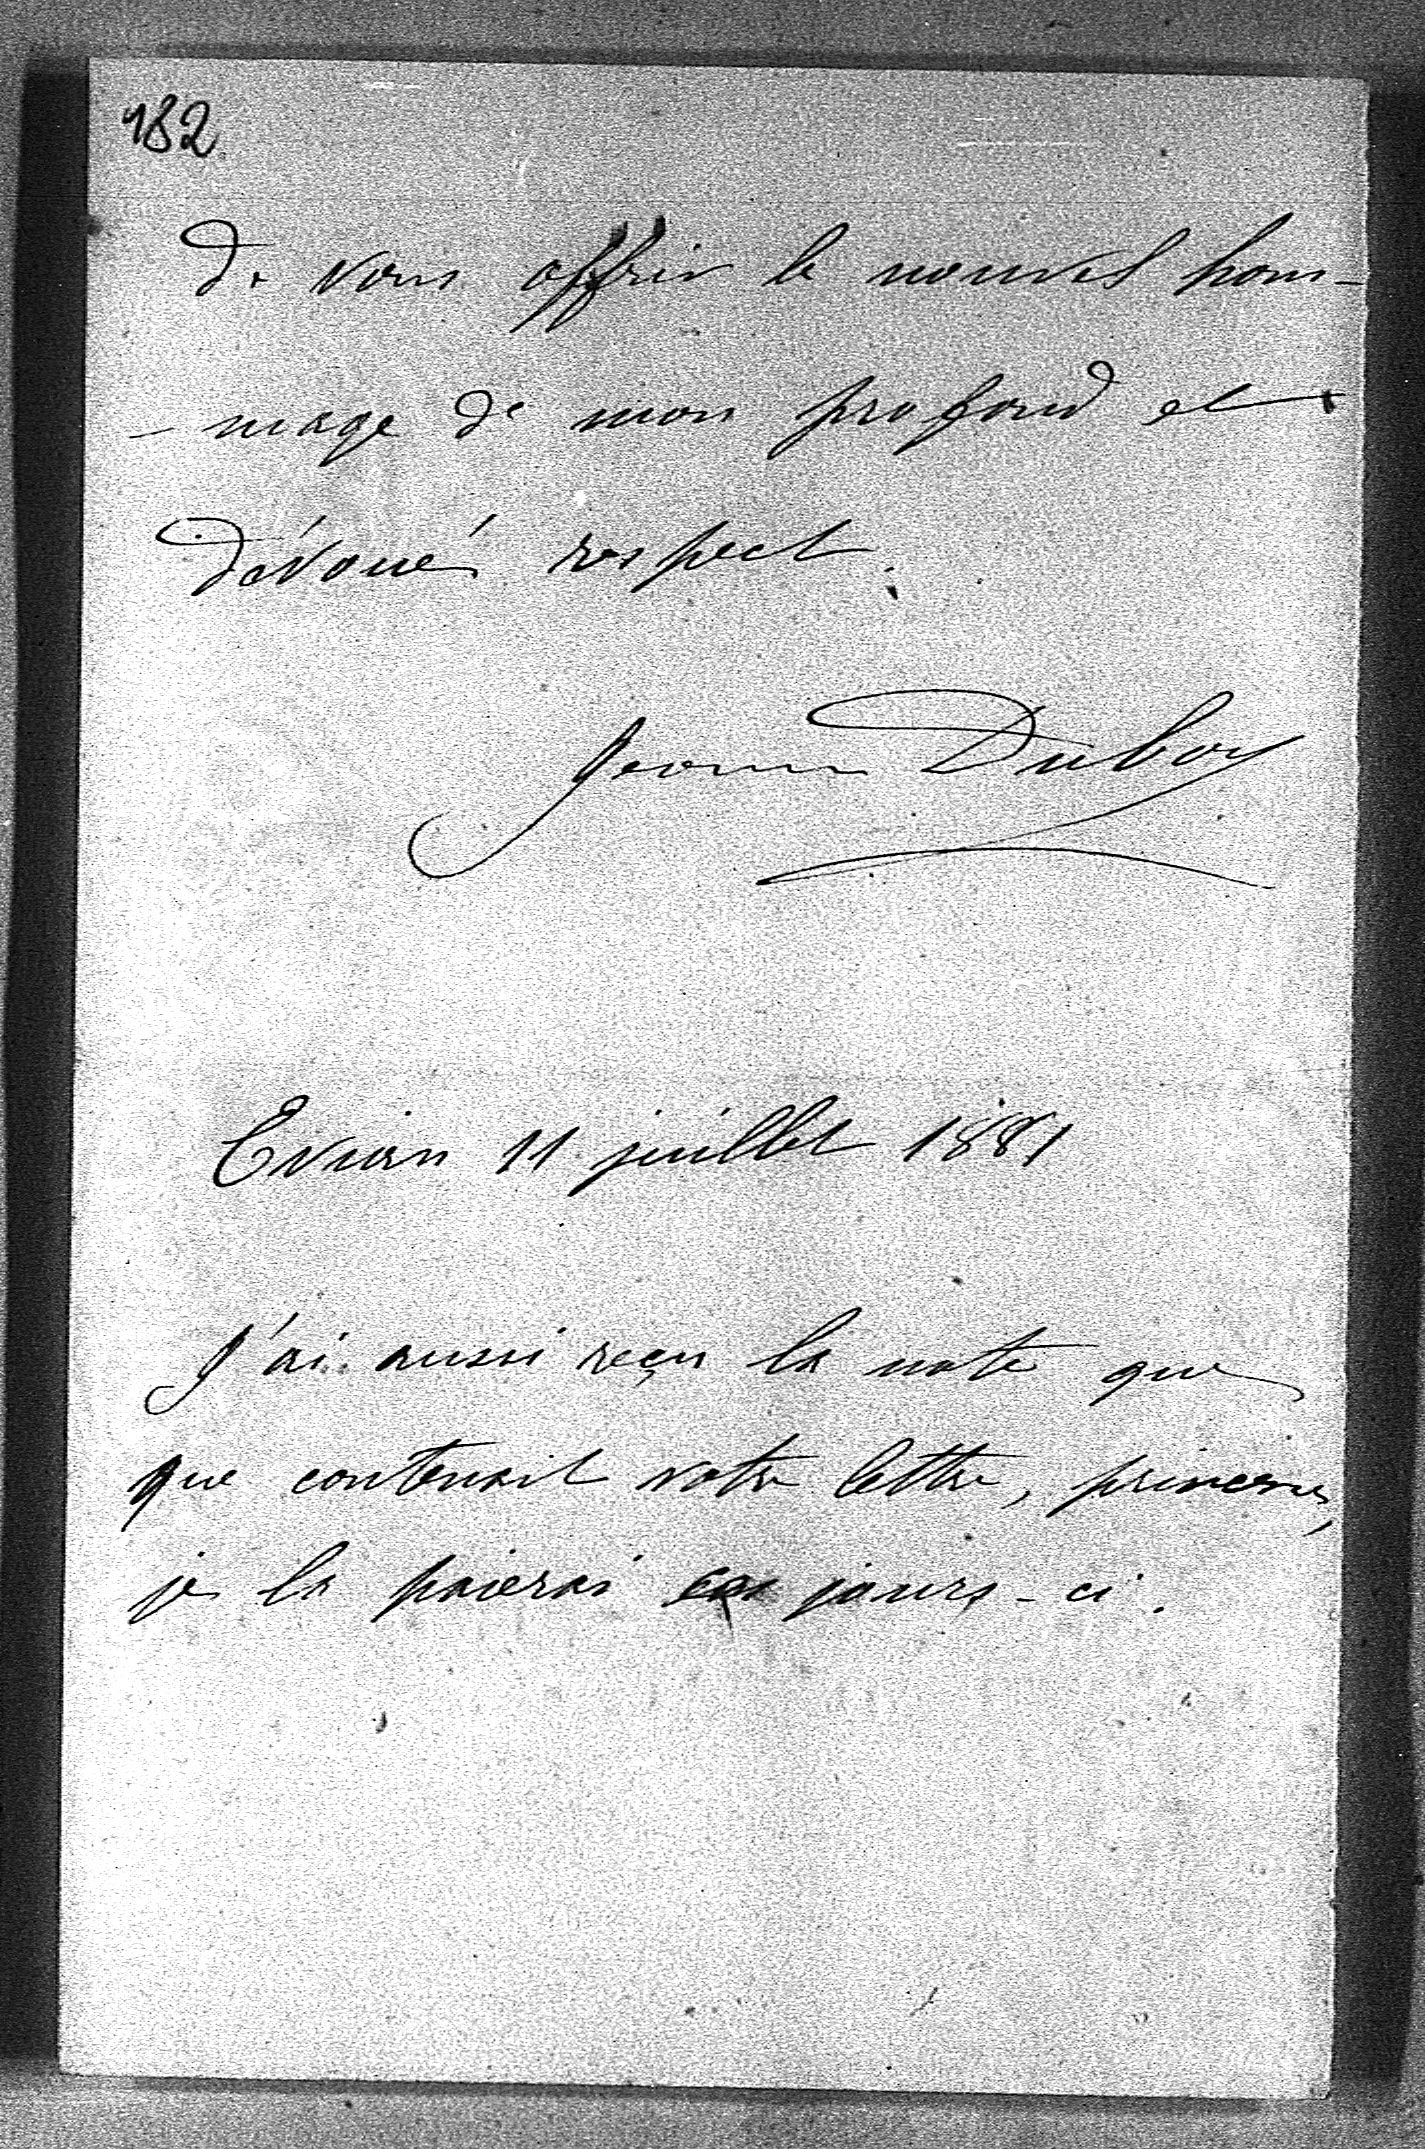 182
de vous offrir le nouvel hom-
- mage de mon profond et
dévoué respect.
Jeanne Duboy
Evian 11 juillet 1881
J'ai aussi reçu la note que
que contenait votre lettre, princesse,
je la paierai ces jours-ci.